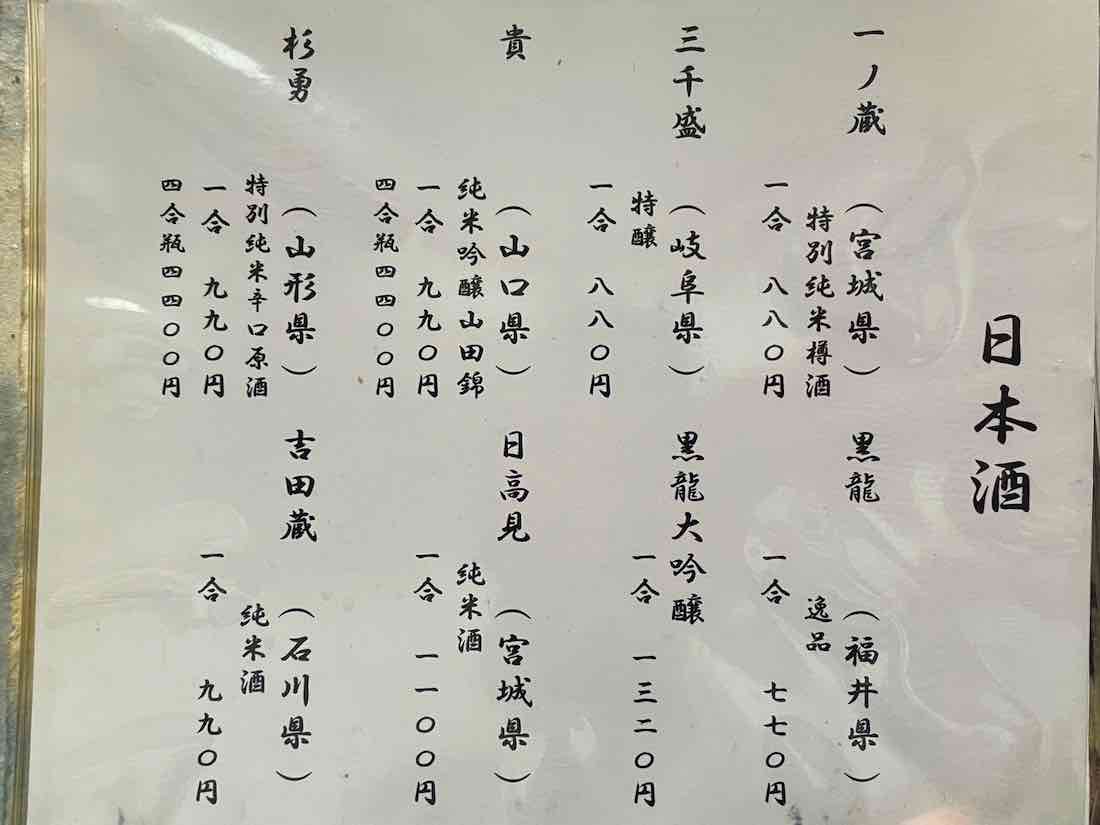 日本酒
一ノ蔵 (宮城県)
特別純米樽酒
一合 八八〇円
黒龍 (福井県)
逸品
一合 七七〇円
三千盛 (岐阜県)
特醸
一合 八八〇円
黒龍大吟醸
一合 一三二〇円
貴 (山口県)
純米吟醸山田錦
一合 九九〇円
四合瓶四四〇〇円
日高見 (宮城県)
純米酒
一合 一一〇〇円
杉勇 (山形県)
特別純米辛口原酒
一合 九九〇円
四合瓶四四〇〇円
吉田蔵 (石川県)
純米酒
一合 九九〇円